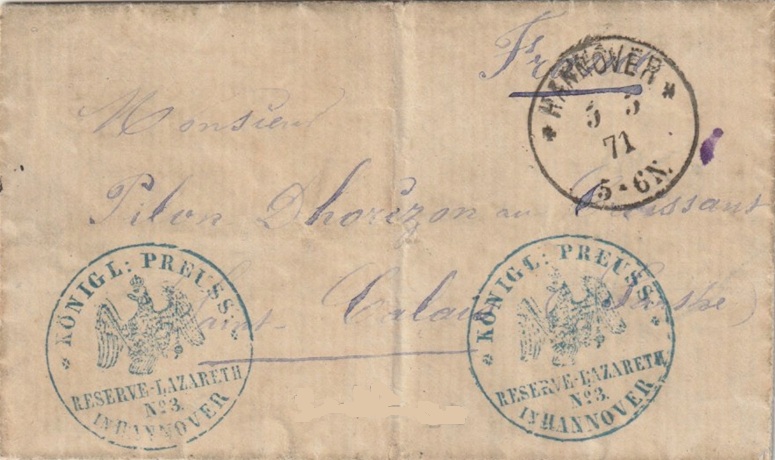 HANNOVER
5 3
71
5-6N.
Monsieur
Pilon Dhorizon au Croissant
Saint-Calais (Sarthe)
KÖNIGL: PREUSS:
RESERVE-LAZARETH
No 3.
IN HANNOVER
KÖNIGL: PREUSS:
RESERVE-LAZARETH
No 3.
IN HANNOVER